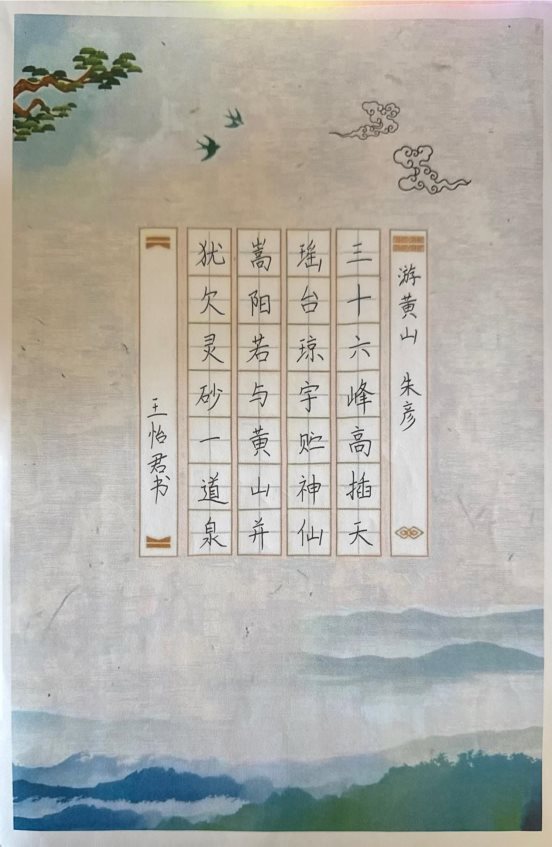 游黄山 朱彦
三十六峰高插天
瑶台琼宇贮神仙
嵩阳若与黄山并
犹欠灵砂一道泉
王怡君书